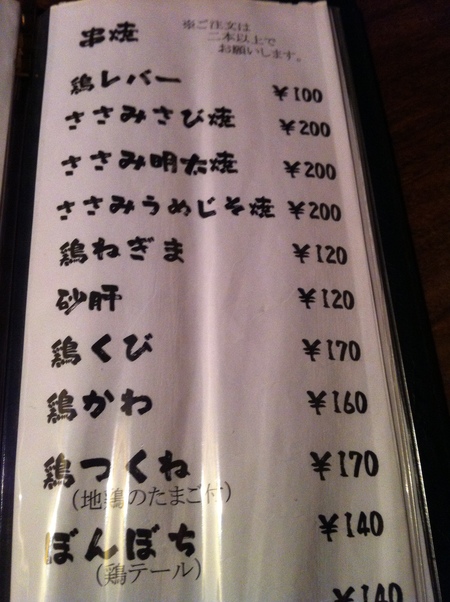 串焼
※ご注文は
二本以上で
お願いします。
鶏レバー ¥100
ささみさび焼 ¥200
ささみ明太焼 ¥200
ささみうめじそ焼 ¥200
鶏ねぎま ¥120
砂肝 ¥120
鶏くび ¥170
鶏かわ ¥160
鶏つくね ¥170
(地鶏のたまご付)
ぼんぼち ¥140
(鶏テール)
¥140